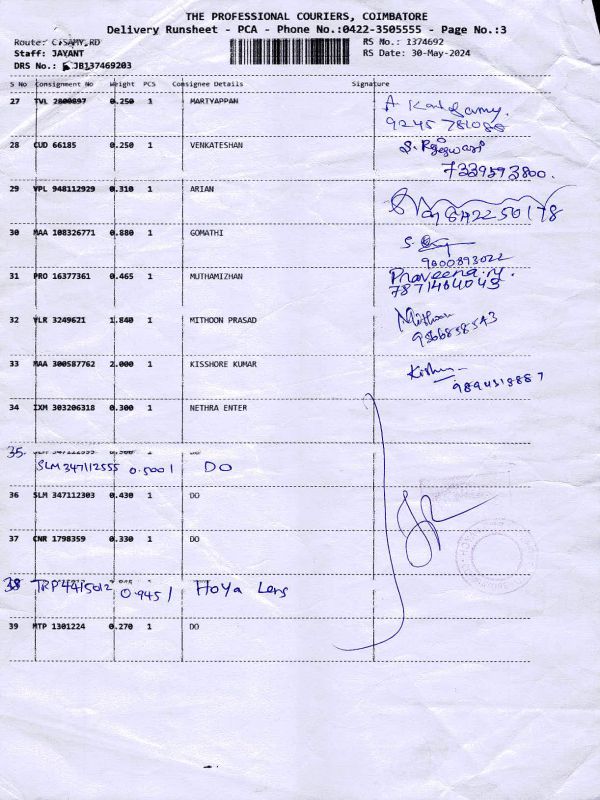 THE PROFESSIONAL COURIERS, COIMBATORE
Delivery Runsheet - PCA - Phone No.:0422-3505555 - Page No.:3
Route: C.SAMY.RD RS No.: 1374692
Staff: JAYANT RS Date: 30-May-2024
DRS No.: JB137469203
S No Consignment No Weight PCS Consignee Details Signature
27 TVL 2800897 0.250 1 MARIYAPPAN
9245 781088
28 CUD 66185 0.250 1 VENKATESHAN S. Rajeswari
7339593800.
29 VPL 948112929 0.310 1 ARIAN
30 MAA 108326771 0.880 1 GOMATHI
9600893022
31 PRO 16377361 0.465 1 MUTHAMIZHAN Praveena.
7871464043
32 VLR 3249621 1.840 1 MITHOON PRASAD Mithoon
9566858543
33 MAA 300587762 2.000 1 KISSHORE KUMAR Kishu
9894518887
34 IXM 303206318 0.300 1 NETHRA ENTER
35. SLM 347112555 0.500 1 DO
36 SLM 347112303 0.430 1 DO
37 CNR 1798359 0.330 1 DO
38 TRP 4415012 0.945 1 HoYa Lens
39 MTP 1301224 0.270 1 DO